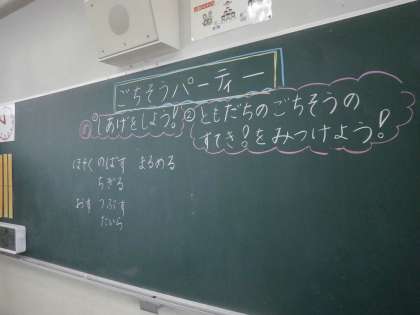 ごちそうパーティー
①しあげをしよう!
②ともだちのごちそうの
すてき!をみつけよう!
ほそく のばす まるめる
ちぎる
おす つぶす
たいら